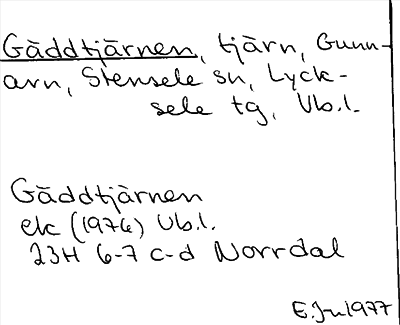 Gäddtjärnen, tjärn, Gunn-
arn, Stensele sn, Lyck-
sele tg, Vb.l.
Gäddtjärnen
ek (1976) Vb.l.
23H 6-7 c-d Norrdal
1977